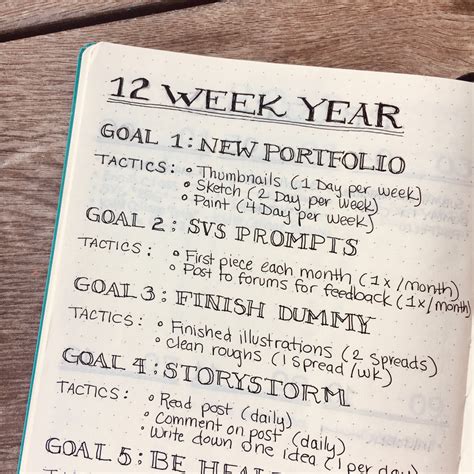 12 WEEK YEAR
GOAL 1: NEW PORTFOLIO
TACTICS: • Thumbnails (1 Day per week)
• Sketch (2 Day per week)
• Paint (4 Day per week)
GOAL 2: SVS PROMPTS
TACTICS: • First piece each month (1x/month)
• Post to forums for feedback (1x/month)
GOAL 3: FINISH DUMMY
TACTICS: • Finished illustrations (2 Spreads)
• clean roughs (1 spread/wk)
GOAL 4: STORYSTORM
TACTICS: • Read post (daily)
• Comment on post (daily)
• Write down one idea (1 per day)
GOAL 5: BE